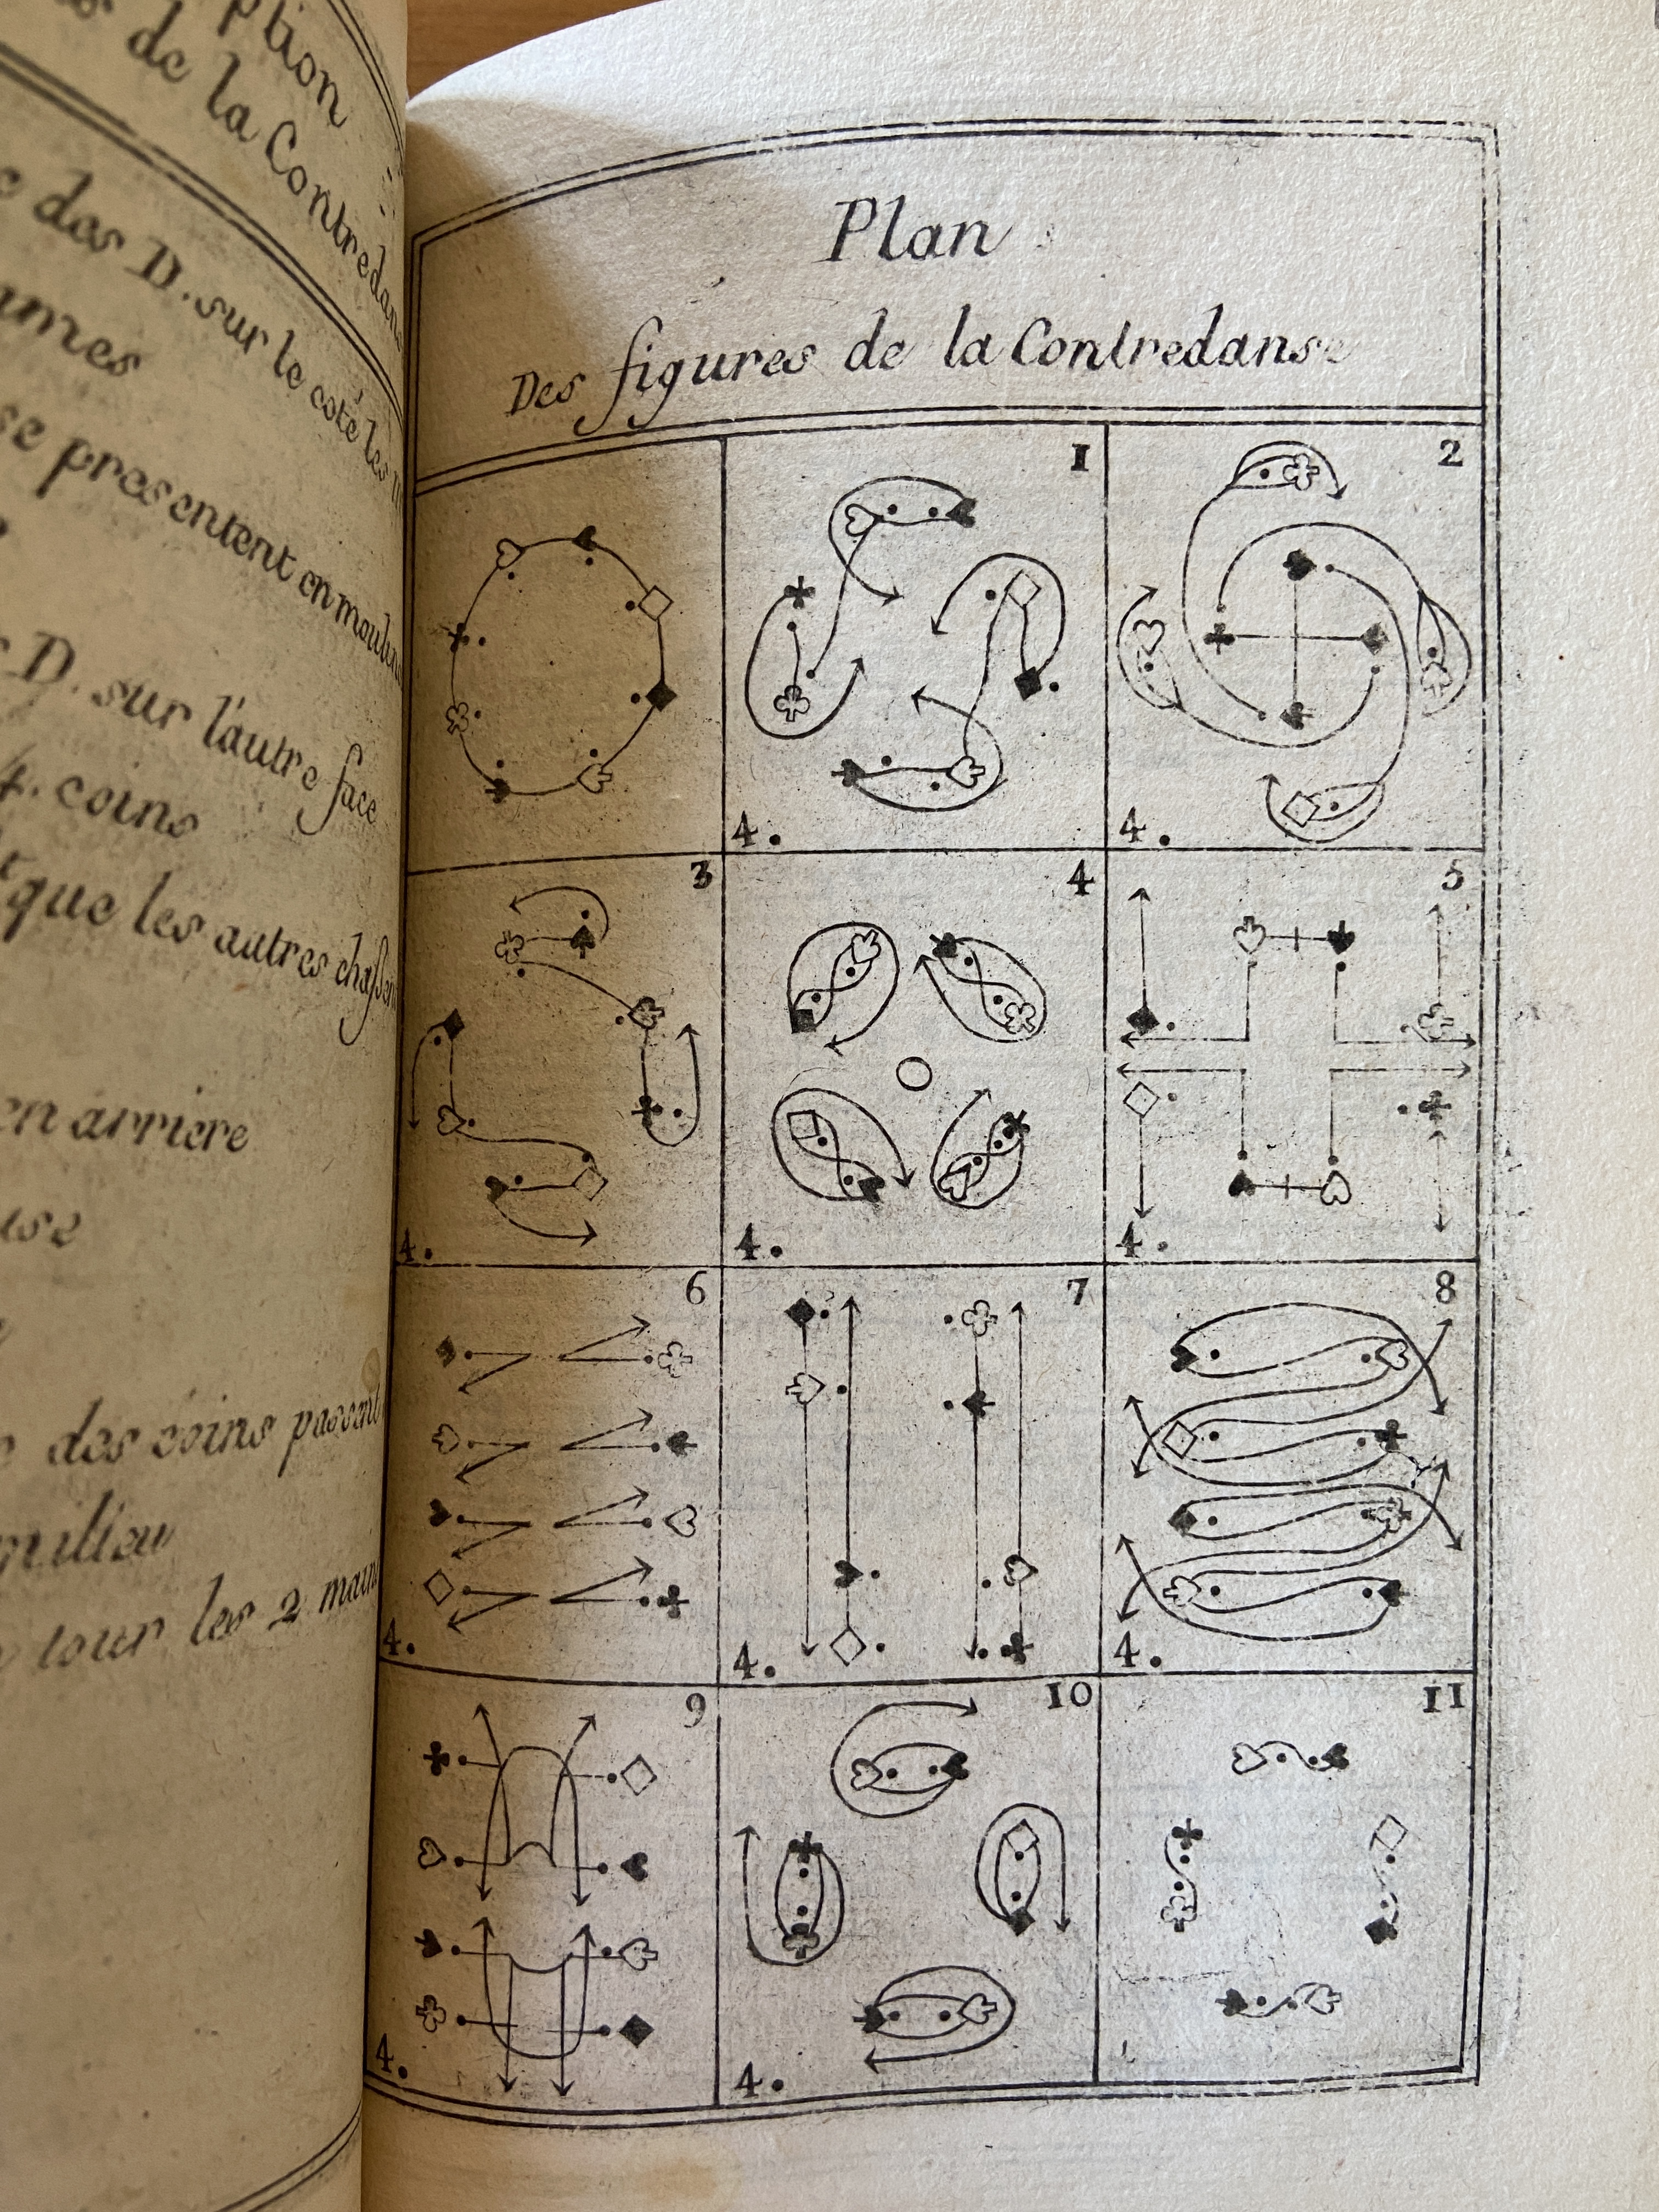 de la Contredans
des D. sur le coté les
presentent en mouline
D. sur l'autre face
4. coins
que les autres chassent
en arriere
des coins passent
milieu
tour les 2 mains
Plan
Des figures de la Contredanse
1
4.
2
4.
3
4.
4
4.
5
4.
6
4.
7
4.
8
4.
9
4.
10
4.
11